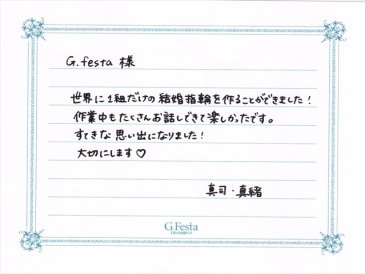 G.festa 様
世界に1組だけの結婚指輪を作ることができました!
作業中もたくさんお話しできて楽しかったです。
すてきな思い出になりました!
大切にします♡
真司・真緒
G.Festa